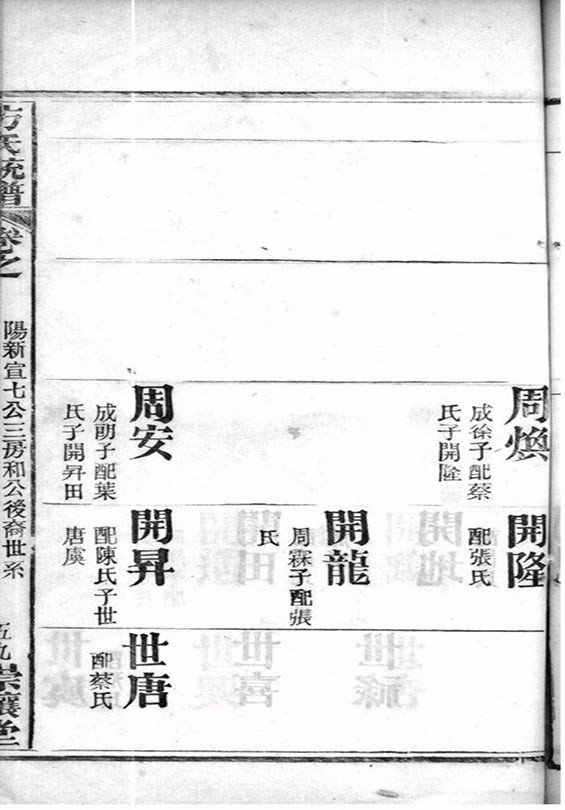 周煥
成徐子配蔡
氏子開隆
周安
成子配葉
氏子開昇田
開隆
配張氏
開龍
周霖子配張
氏
開昇
配陳氏子世
唐虞
世唐
配蔡氏
方氏統譜
卷之
陽新宣七公三房和公後裔世系
五九
崇讓堂